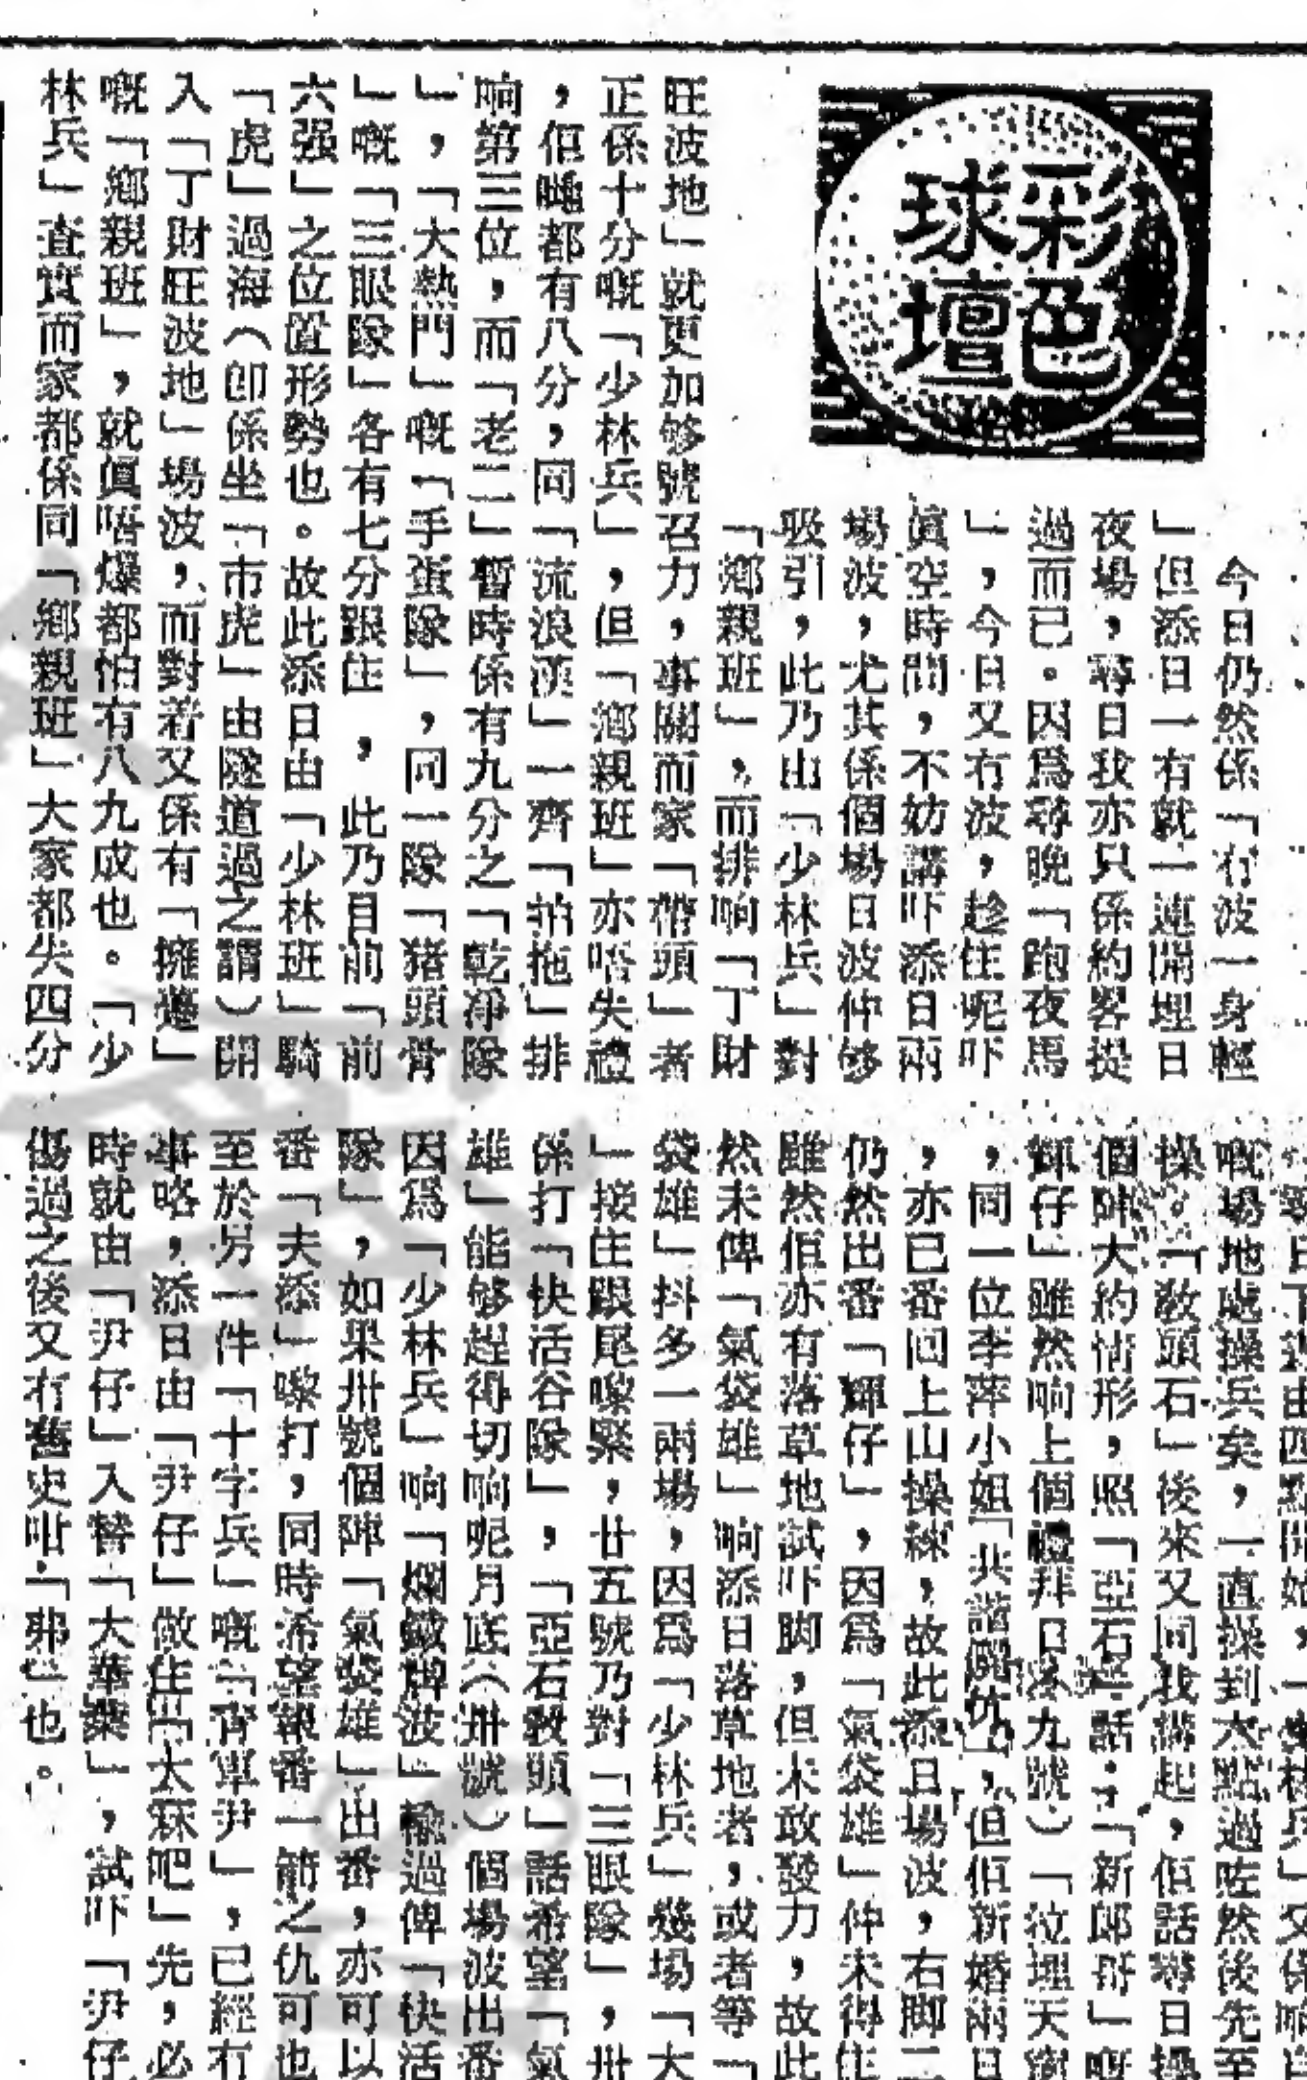 彩色
球壇
今日仍然係「冇波一身輕
」但添日一有就一連開埋日
夜場，尋日我亦只係約畧提
過而已。因爲尋晚「跑夜馬
」，今日又冇波，趁住呢吓
眞空時間，不妨講吓添日兩
場波，尤其係個場日波仲够
吸引，此乃由「少林兵」對
「鄉親班」，而排响「丁財
旺波地」就更加够號召力，事關而家「帶頭」者
正係十分嘅「少林兵」，但「鄉親班」亦唔失禮
，佢哋都有八分，同「流浪漢」一齊「拍拖」排
响第三位，而「老二」暫時係有九分之「乾淨隊
」，「大熱門」嘅「手蛋隊」，同一隊「猪頭骨
」嘅「三眼隊」各有七分跟住，此乃目前「前
六强」之位置形勢也。故此添日由「少林班」騎
「虎」過海（卽係坐「市虎」由隧道過之謂）開
入「丁財旺波地」場波，而對着又係有「擁躉」
嘅「鄉親班」，就眞唔爆都怕有八九成也。「少
林兵」查實而家都係同「鄉親班」大家都失四分
嘅場地處操兵矣，一直操到六點過咗然後先至
操。「敎頭石」後來又同我講起，佢話尋日操
個陣大約情形，照「亞石」話：「新郞哥」嘅
輝仔」雖然响上個禮拜日（九號）「拉埋天窗
，同一位李萍小姐「共諧　」，但佢新婚兩日
，亦已番回上山操練，故此添日場波，右脚二
仍然出番「輝仔」，因爲「氣袋雄」仲未得住
雖然佢亦有落草地試吓脚，但未敢發力，故此
然未俾「氣袋雄」响添日落草地者，或者等「
袋雄」抖多一兩場，因爲「少林兵」幾場「大
」接住跟尾嚟緊，廿五號乃對「三眼隊」，卅
係打「快活谷隊」，「亞石敎頭」話希望「氣
雄」能够趕得切响呢月底（卅號）個場波出番
因爲「少林兵」响「爛鐵牌波」輸過俾「快活
隊」，如果卅號個陣「氣袋雄」出番，亦可以
番「夫添」嚟打，同時希望報番一箭之仇可也
至於另一件「十字兵」嘅「冑單尹」，已經冇
事咯，添日由「尹仔」做住「大麻吧」先，必
時就由「尹仔」入替「大華葉」，試吓「尹仔
傷過之後又冇舊史咕「弗」也。